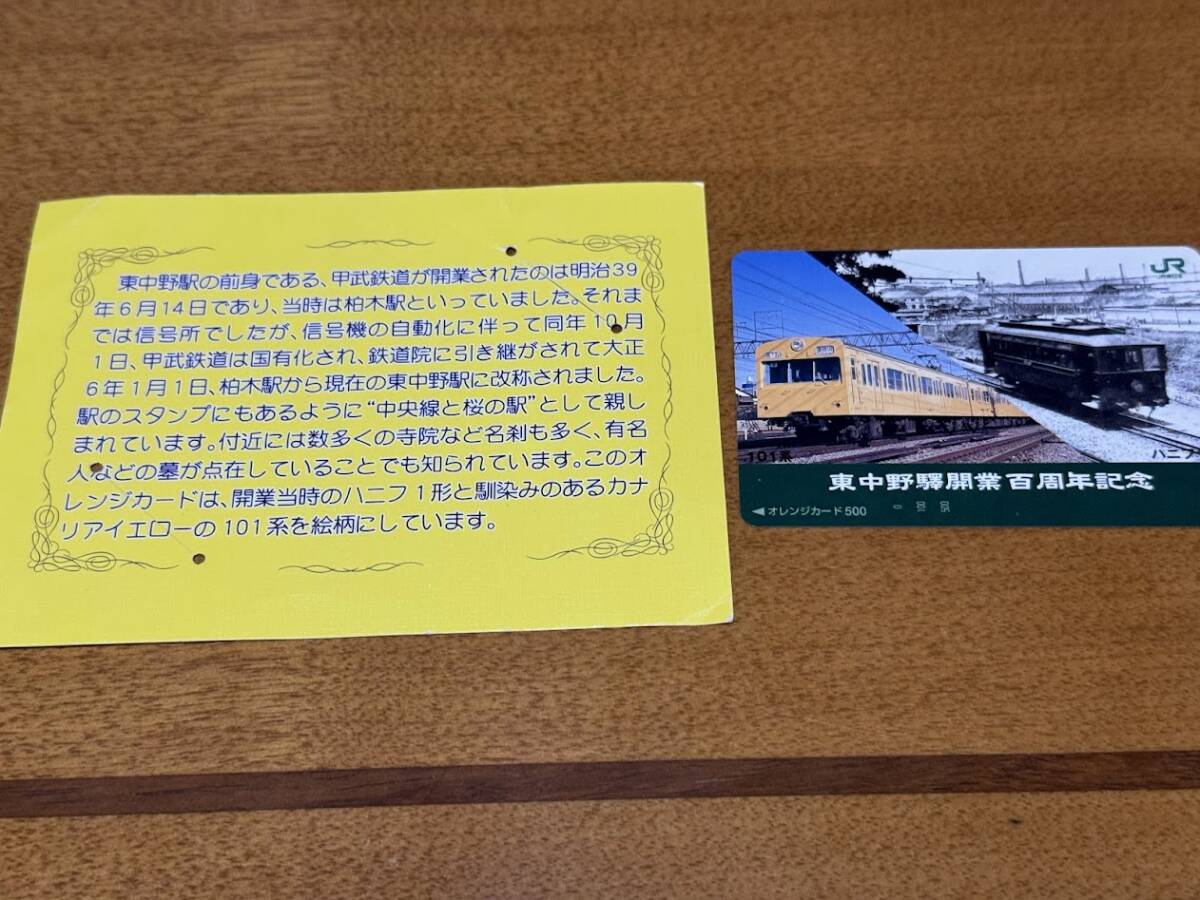 東中野駅の前身である、甲武鉄道が開業されたのは明治39
年6月14日であり、当時は柏木駅といっていました。それま
では信号所でしたが、信号機の自動化に伴って同年10月
1日、甲武鉄道は国有化され、鉄道院に引き継がされて大正
6年1月1日、柏木駅から現在の東中野駅に改称されました。
駅のスタンプにもあるように“中央線と桜の駅”として親し
まれています。付近には数多くの寺院など名刹も多く、有名
人などの墓が点在していることでも知られています。このオ
レンジカードは、開業当時のハニフ1形と馴染みのあるカナ
リアイエローの101系を絵柄にしています。
JR
101系
ハニフ
東中野驛開業百周年記念
◀オレンジカード500